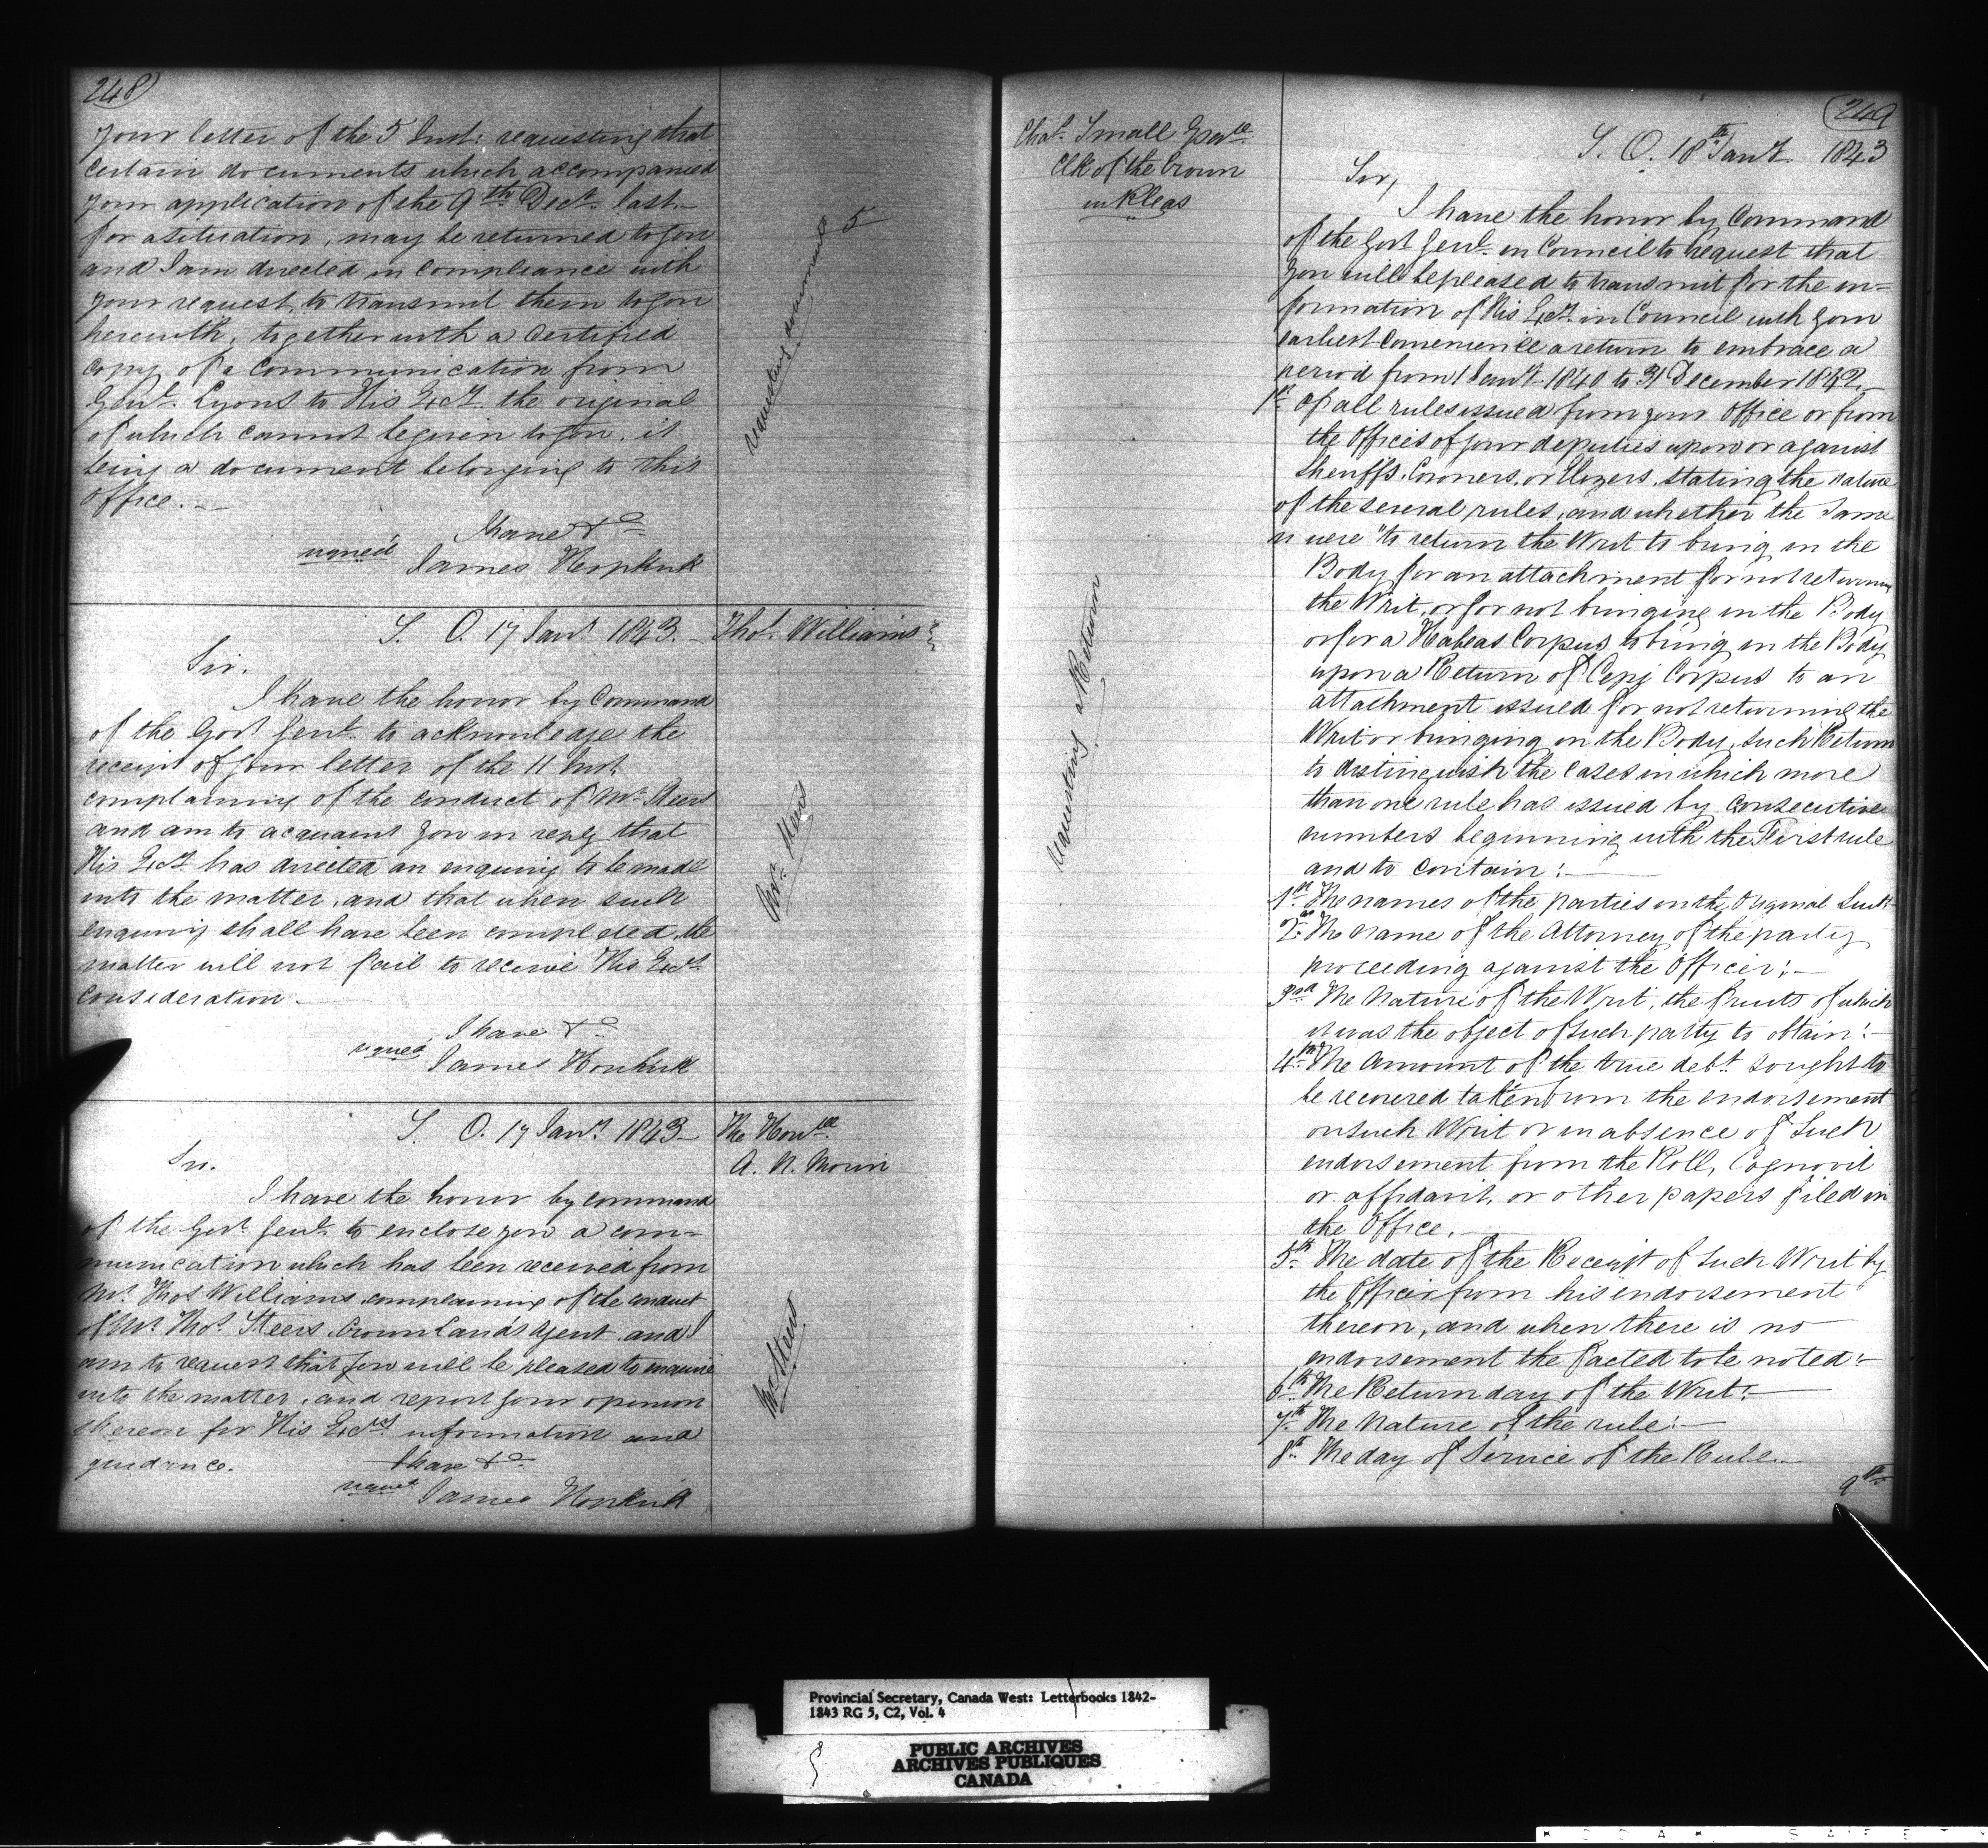 248
your letter of the 5 Inst: requesting that
certain documents which accompanied
your application of the 9th Decr. last
for a situation, may be returned to you
and I am directed in compliance with
your request, to transmit them to you
herewith, together with a certified
copy of a communication from
Genl. Lyons to His Excy. the original
of which cannot be given to you, it
being a document belonging to this
Office.
I have &c
signed James Hopkirk
documents 5
S. O. 17 Jany. 1843.
Thos. Williams
Sir.
I have the honor by Command
of the Govr. Genl. to acknowledge the
receipt of your letter of the 11 Inst.
complaining of the conduct of Mr. Steers
and am to acquaint you in reply that
His Excy. has directed an enquiry to be made
into the matter, and that when such
enquiry shall have been completed, the
matter will not fail to receive His Excys.
consideration.
I have &c
signed James Hopkirk
Steers
S. O. 17 Jany. 1843
The Honble.
A. N. Morin
Sir.
I have the honor by command
of the Govr. Genl. to enclose you a com-
munication which has been received from
Mr. Thos Williams complaining of the conduct
of Mr. Thos. Steers, Crown Lands Agent and I
am to request that you will be pleased to enquire
into the matter, and report your opinion
thereon for His Excys. information and
guidance.
I have &c
signed James Hopkirk
Mr. Steers
249
Chas. Small Esqre.
Clk of the Crown
in Pleas
S. O. 18th Jany. 1843
Sir,
I have the honor by Command
of the Govr. Genl. in Council to request that
you will be pleased to transmit for the in-
formation of His Excy. in Council with your
earliest convenience a return to embrace a
period from 1 Jany. 1840 to 31 December 1842.
1st. Of all rules issued from your Office or from
the Offices of your deputies upon or against
Sheriffs, Coroners, or Elizors, stating the nature
of the several rules, and whether the same
were "to return the Writ to bring in the
Body for an attachment for not returning
the Writ, or for not bringing in the Body
or for a Habeas Corpus to bring in the Body
upon a Return of Cepi Corpus to an
attachment issued for not returning the
Writ or bringing in the Body, such Return
to distinguish the cases in which more
than one rule has issued by consecutive
numbers beginning with the First rule
and to contain:
1st. The names of the parties in the Original Suit
2nd. The name of the Attorney of the party
proceeding against the Officer:
3rd. The Nature of the Writ, the fruits of which
it was the object of such party to obtain:
4th. The Amount of the true debt sought to
be recovered taken from the endorsement
on such Writ or in absence of such
endorsement from the Roll, Cognovit
or affidavit, or other papers filed in
the Office.
5th. The date of the Receipt of such Writ by
the Officer from his endorsement
thereon, and when there is no
endorsement the fact ed to be noted:
6th. The Return day of the Writ:
7th. The Nature of the rule:
8th. The day of Service of the Rule.
9th
a Return
Provincial Secretary, Canada West: Letterbooks 1842-
1843 RG 5, C2, Vol. 4
PUBLIC ARCHIVES
ARCHIVES PUBLIQUES
CANADA